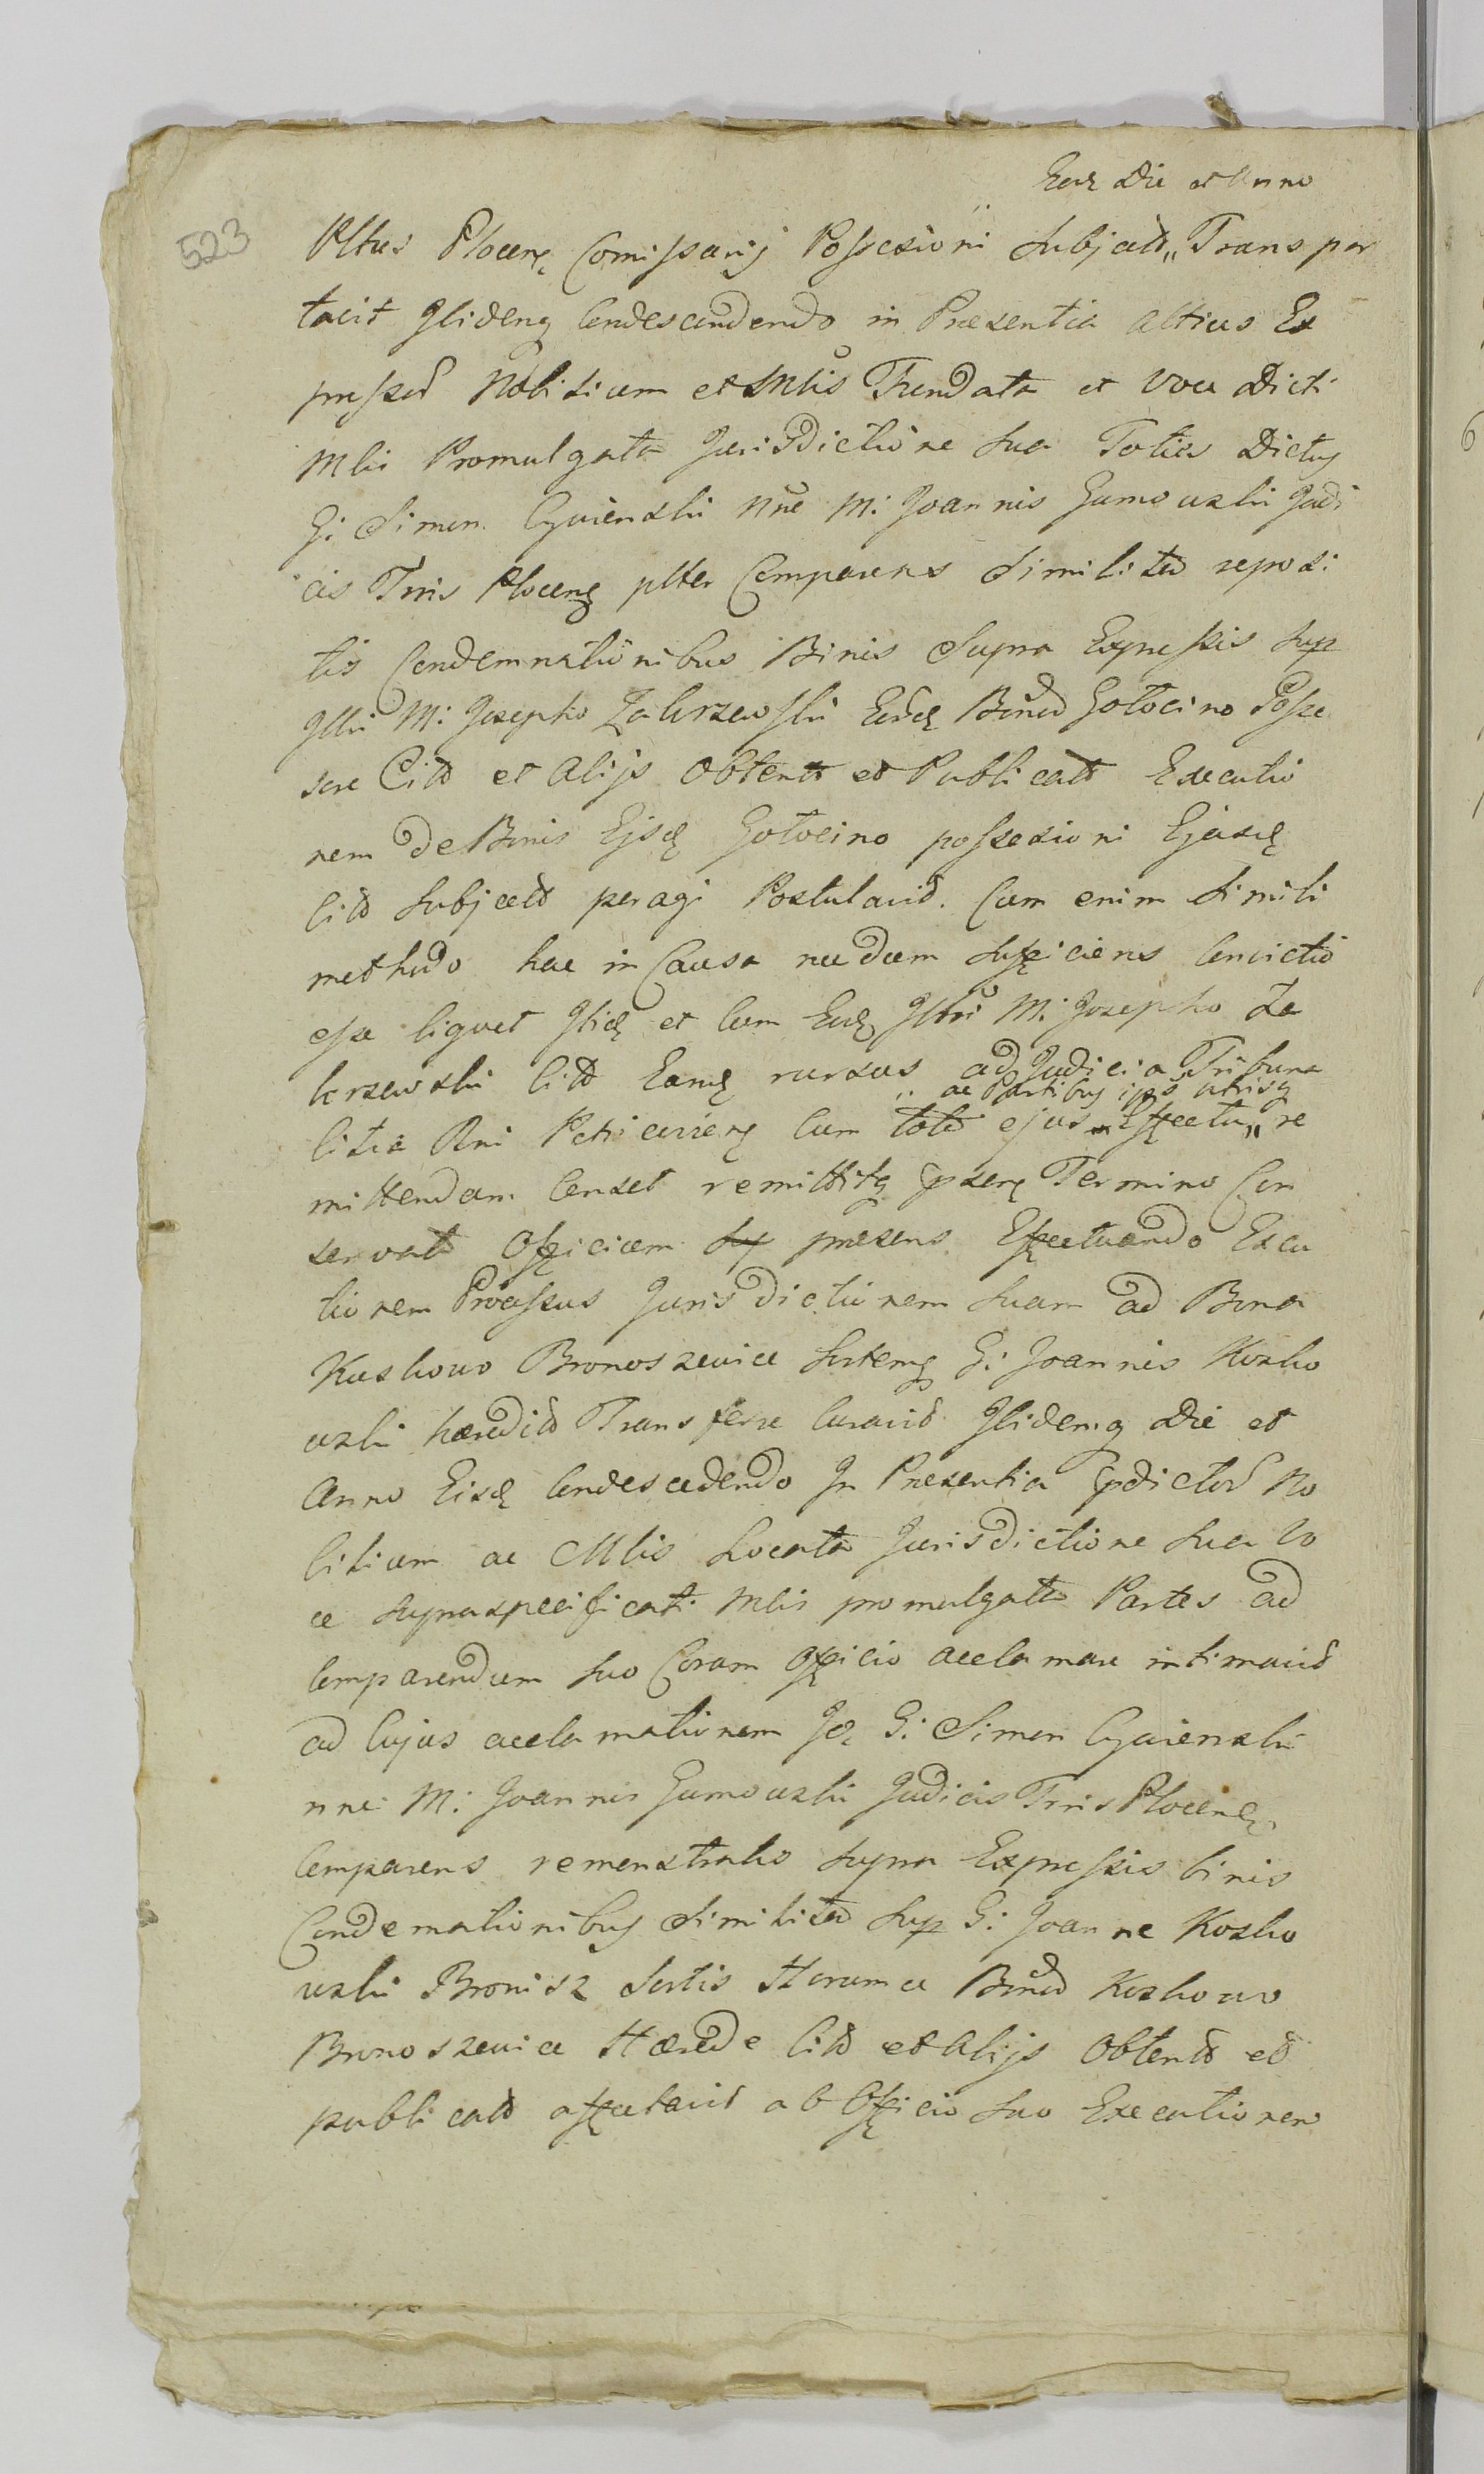 Eod Die et Anno
523
Pltus Plocens Comissarij Possesioni Subject„ Transpor
tavit Ibidemq Condescendendo in Praesentia altius Ex
pressor Nobilium et Mlis Fundata et voce Dicti
Mlis Promulgata Jurisdictione sua Toties Dictus
G: Simon Cywienski nne M: Joannis Gumowski Judi
cis Trris Plocens plter Comparens Similiter reposi
tis Condemnationibus Binis Supra Expressis Sup
M: Josepho Zakrzewski Bonor Gołocino Posse
sore Citto et Alijs Obtentt et Publicatt Executio
nem de Bonis Ejsd Gołocino possesioni Ejusd
Citt Subjectt peragi Postulavit. Cum enim Simili
methodo hac in Causa necdum sufficiens Convictio
esse liquet et Cum Eod M: Josepho Za
krzewski Citt Eamq rursus ad Judicia Tribuna
„ ac Partibus ijs utrisq
litia Rni Petricoviens Cum toto ejus Effectu„ re
mittendam Censet remittitq psens Termino Con
servatt Officium Sup praesens Effectuando Execu
tionem Processus Jurisdictionem suam ad Bona
Koskowo Bronoszewice Sortemq G: Joannis Kosko
wski haeredit Transferre Curavit Ibidemq Die et
Anno Eisd Condescedendo In Praesentia pdictor No
bilium ac Mlis Locata Jurisdictione sua Vo
ce supraspecificati Mlis promulgata Partes ad
Comparendum suo Coram officio acclamare intimavit
ad Cujus acclamationem Id G: Simon Cywienski
nne M: Joannis Gumowski Judicis Trris Plocens
Comparens remonstratis Supra Expressis binis
Condemationibus Similiter Sup G: Joanne Kosko
wski Bronisz Sortis Horumce Bonor Koskowo
Bronoszewice Haerede Citt et Alijs Obtentt et
publicatt affectavit ab Officio suo Executionem